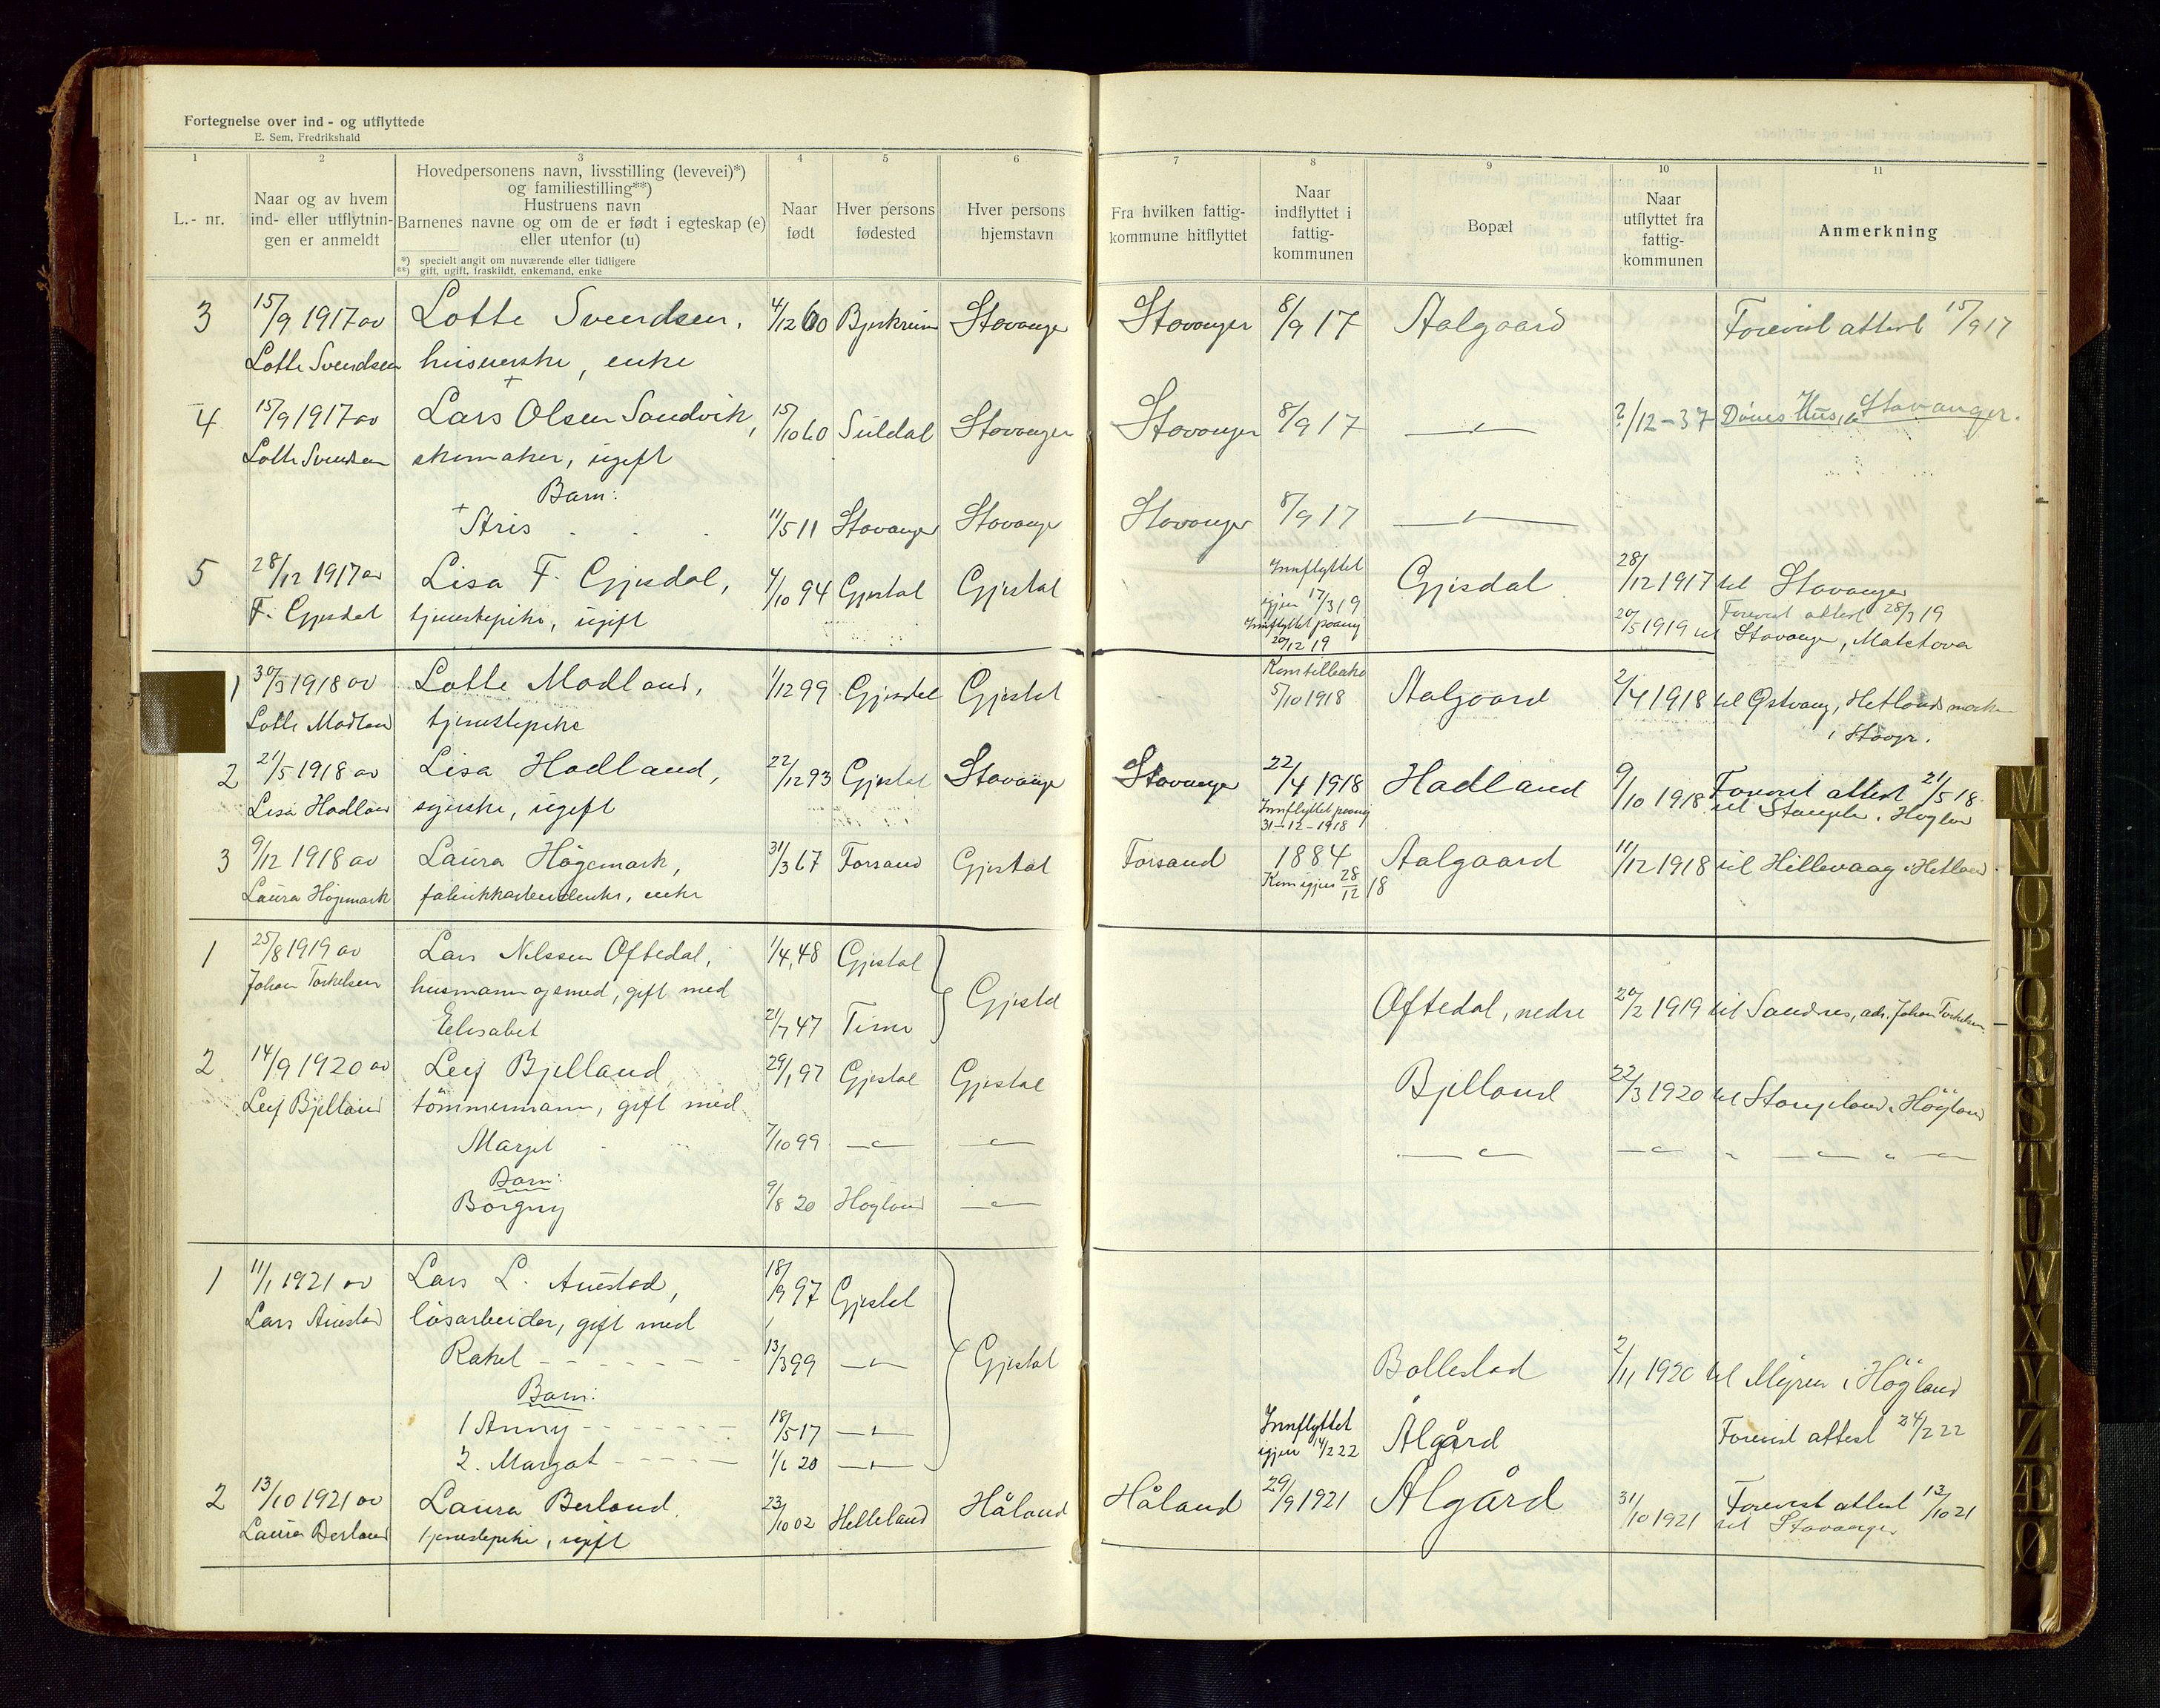 Fortegnelse over ind - og utflyttede
E. Sem, Fredrikshald
1 2 3 4 5 6 7 8 9 10 11
L.- nr.
Naar og av hvem
ind- eller utflytnin-
gen er anmeldt
Hovedpersonens navn, livsstilling (levevei)*)
og familiestilling**)
Hustruens navn
Barnenes navne og om de er født i egteskap (e)
eller utenfor (u)
*) specielt angit om nuværende eller tidligere
**) gift, ugift, fraskildt, enkemand, enke
Naar
født
Hver persons
fødested
Hver persons
hjemstavn
Fra hvilken fattig-
kommune hitflyttet
Naar
indflyttet i
fattig-
kommunen
Bopæl
Naar
utflyttet fra
fattig-
kommunen
Anmerkning
3 15/9 1917 av Lotte Svendsen, 4/12 60 Bjerkreim Stavanger Stavanger 8/9 17 Aalgaard Forevist attest 15/9 17
Lotte Svendsen husmerske, enke
4 15/9 1917 av Lars Olsen Sandvik, 15/10 60 Suldal Stavanger Stavanger 8/9 17 —"— ?/12-37 Hus, Stavanger.
Lotte Svendsen skomaker, ugift
Barn:
+ Stavanger Stavanger Stavanger 8/9 17 —"—
11/5 11
5 28/12 1917 av Lisa F. Gjesdal, 4/10 94 Gjestal Gjestal Innflyttet igjen 17/3 19 Gjesdal 28/12 1917 til Stavanger
F. Gjesdal tjenestepike, ugift Innflyttet paany 20/12 19 Forevist attest 28/3 19
20/5 1919 til Stavanger, Matstova
1 30/3 1918 av Lotte Modland, 1/12 99 Gjesdal Gjestal Kom tilbake 5/10 1918 Aalgaard 2/4 1918 til Østvang, Hetlandsmarken
Lotte Modland tjenestepike i Stavgr.
2 21/5 1918 av Lisa Hadland, 22/12 93 Gjestal Stavanger Stavanger 22/4 1918 Hadland 9/10 1918 Forevist attest 21/5 18.
Lisa Hadland syerske, ugift Innflyttet paany 31-12-1918 til Høyland
3 9/12 1918 av Laura Högemark, 31/3 67 Forsand Gjestal Forsand 1884 Aalgaard 11/12 1918 til Hillevaag i Hetland
Laura Högemark fabrikkarbeiderske, enke Kom igjen 28/12 18
1 25/8 1919 av Lars Nilssen Oftedal, 1/4, 48 Gjestal
Johan Torkelsen husmann og smed, gift med Gjestal Oftedal, nedre 20/2 1919 til Sandnes, adr. Johan Torkelsen
Elisabet 21/7 47 Time
2 14/9 1920 av Leif Bjelland 29/1 97 Gjestal Gjestal Bjelland 22/3 1920 til Stangeland i Höyland
Leif Bjelland tömmermann, gift med
Margit 7/10 99 —"— —"— —"— —"— " —"— " —"—
Barn:
Borgny 9/8 20 Høyland —"—
1 11/1 1921 av Lars L. Auestad, 18/9 97 Gjestal
Lars Auestad lösarbeider, gift med
Rakel 13/3 99 —"— Gjestal Bollestad 2/11 1920 til Myren i Höyland
Barn:
1 Anny 18/5 17 —"— Innflyttet igjen 14/2 22 Ålgård Forevist attest 24/2 22
2. Margot 1/6 20 —"—
2 13/10 1921 av Laura Berland 23/10 02 Helleland Håland Håland 29/9 1921 Ålgård 31/10 1921 Forevist attest 13/10 21
Laura Berland tjenestepike, ugift til Stavanger
M
N
O
P
Q
R
S
T
U
W
X
Y
Z
Æ
Ø